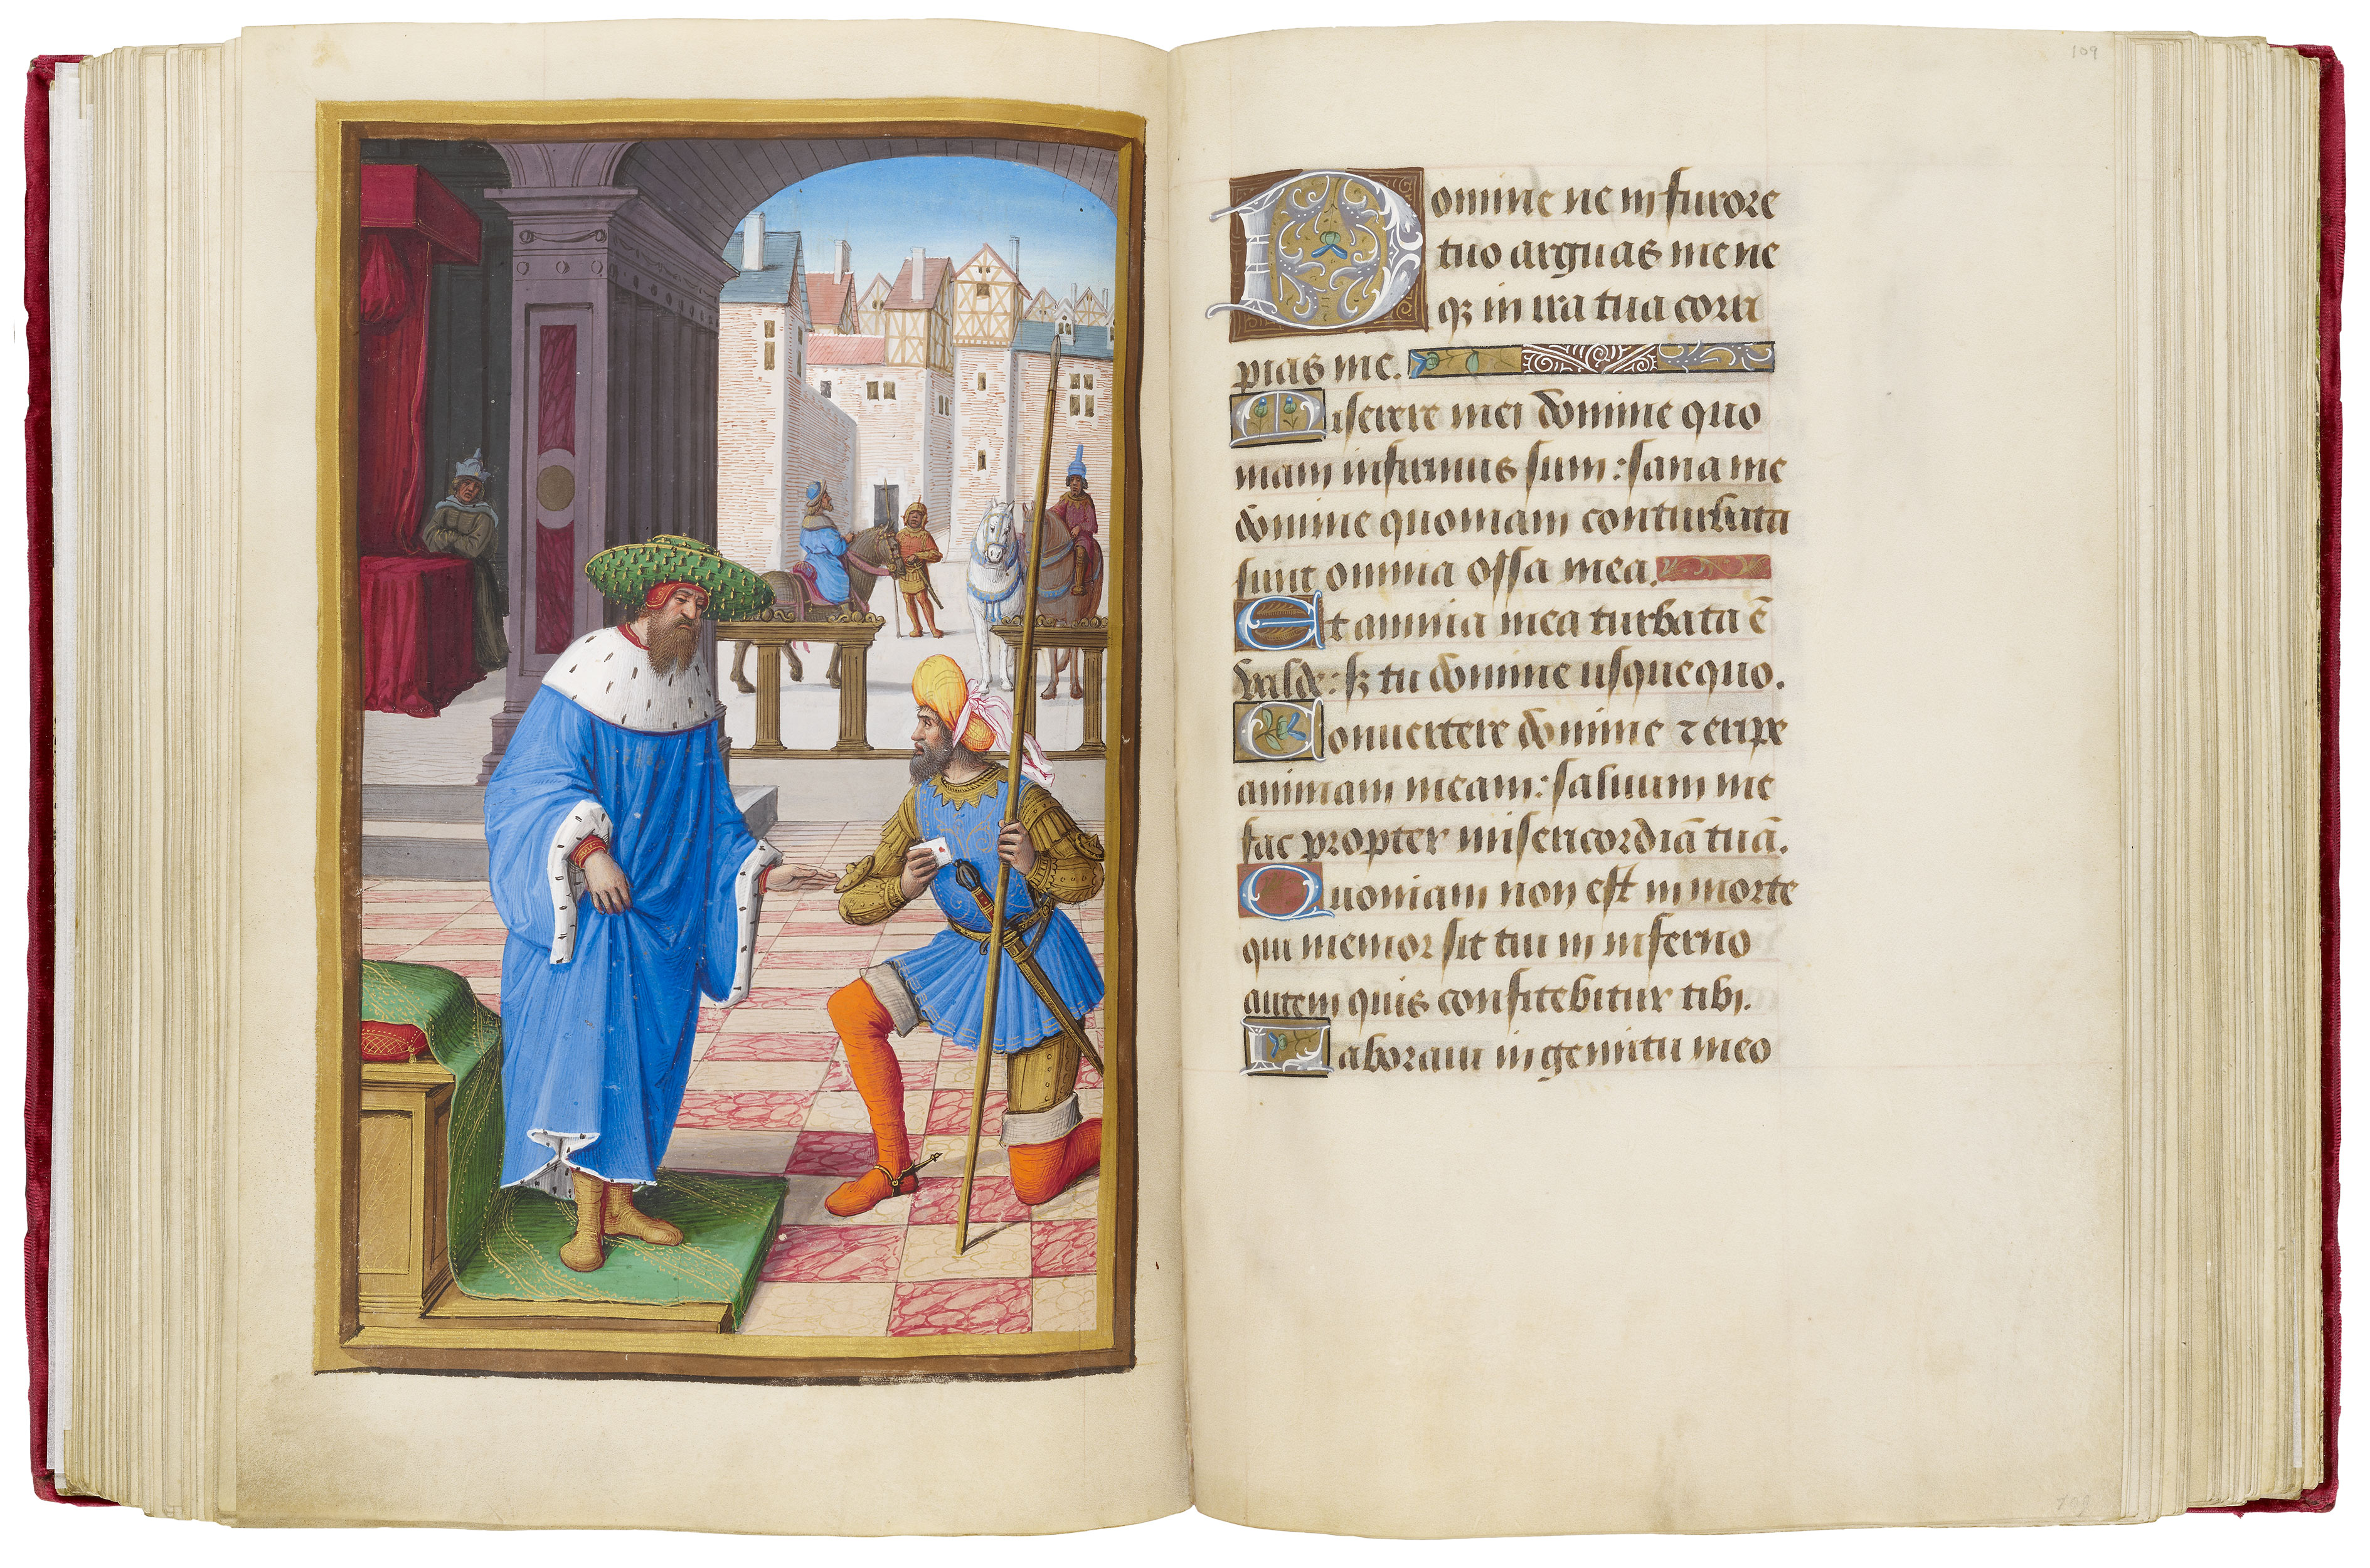 109
Domine ne in furore
tuo arguas me ne
qꝫ in ira tua corri
pias me.
Miserere mei domine quo
niam infirmus sum: sana me
domine quoniam conturbata
sunt omnia ossa mea.
Et anima mea turbata ē
valde: sꝫ tu domine usquequo.
Conuertere domine ⁊ eripe
animam meam: saluum me
fac propter misericordiā tuā.
Quoniam non est in morte
qui memor sit tui in inferno
autem quis confitebitur tibi.
Laboraui in gemitu meo
109